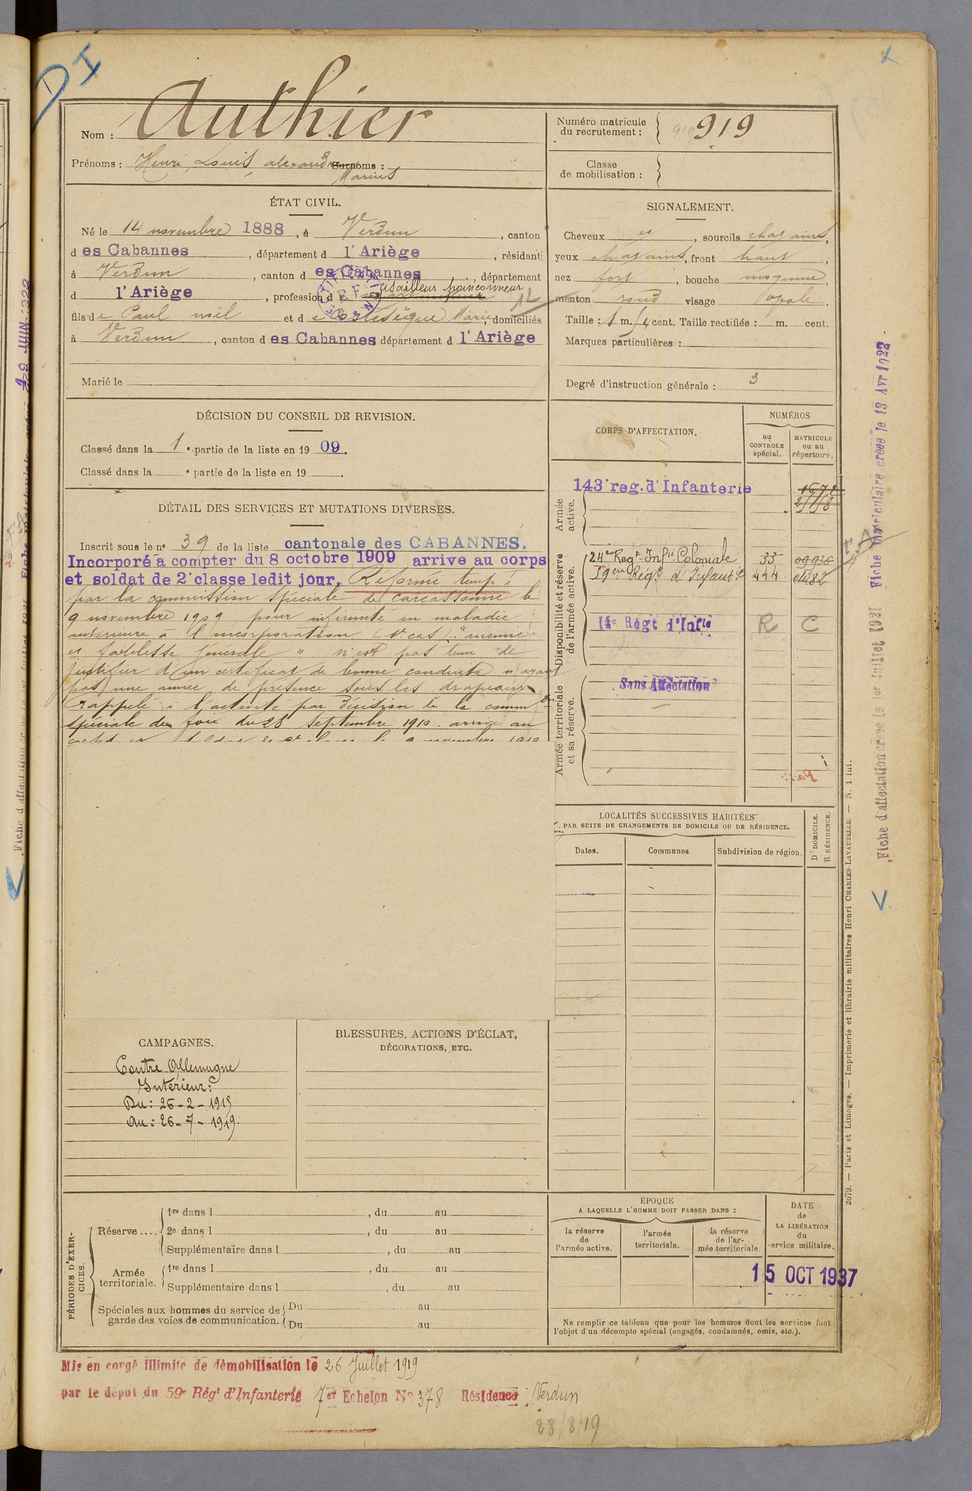 DI
Nom : Authier
Prénoms : Henri Louis alexandre Surnoms :
Marius
Numéro matricule du recrutement : 919
Classe de mobilisation :
ÉTAT CIVIL.
Né le 14 novembre 1888, à Verdun, canton
des Cabannes, département d l'Ariège, résidant
à Verdun, canton d es Cabannes, département
d l'Ariège, profession d
fils de Paul et de Marie, domiciliés
à Verdun, canton d es Cabannes département d l'Ariège
Marié le
SIGNALEMENT.
Cheveux , sourcils chatains,
yeux chatains, front haut,
nez fort, bouche moyenne
menton rond visage ovale.
Taille : 1 m. cent. Taille rectifiée : m. cent.
Marques particulières :
Degré d'instruction générale : 3
DÉCISION DU CONSEIL DE REVISION.
Classé dans la 1e partie de la liste en 1909.
Classé dans la e partie de la liste en 19
DÉTAIL DES SERVICES ET MUTATIONS DIVERSES.
Inscrit sous le n° 39 de la liste cantonale des CABANNES.
Incorporé à compter du 8 octobre 1909 arrive au corps
et soldat de 2e classe ledit jour. Réformé temp.
par la commission spéciale de Carcassonne le
9 novembre 1909 pour infirmité ou maladie
antérieure à l'incorporation "anémie
et faiblesse générale" n'est pas tenu de
justifier d'un certificat de bonne conduite n'ayant
pas une année de présence sous les drapeaux
Rappelé à l'activité par décision de la comm
spéciale de Foix du 28 septembre 1910. arrivé au
CORPS D'AFFECTATION.
NUMÉROS
au CONTROLE spécial.
MATRICULE ou au répertoire.
Armée active.
143e reg. d'Infanterie
Disponibilité et réserve de l'armée active.
24e Regt. Infie Coloniale 33
59eme Régt d'Infantie 444
14e Régt d'Infie R C
Armée territoriale et sa réserve.
Sans Affectation
LOCALITÉS SUCCESSIVES HABITÉES
PAR SUITE DE CHANGEMENTS DE DOMICILE OU DE RÉSIDENCE.
Dates. Communes. Subdivision de région. D DOMICILE. R RÉSIDENCE.
CAMPAGNES.
Contre Allemagne
Intérieur :
Du : 26-2-1915
Au : 26-7-1919.
BLESSURES, ACTIONS D'ÉCLAT,
DÉCORATIONS, ETC.
PÉRIODES D'EXERCICES.
Réserve....
1re dans l , du au
2e dans l , du au
Supplémentaire dans l , du au
Armée territoriale.
1re dans l , du au
Supplémentaire dans l , du au
Spéciales aux hommes du service de garde des voies de communication.
Du au
Du au
ÉPOQUE
A LAQUELLE L'HOMME DOIT PASSER DANS :
la réserve de l'armée active.
l'armée territoriale.
la réserve de l'armée territoriale.
DATE de LA LIBÉRATION du service militaire.
15 OCT 1937
Ne remplir ce tableau que pour les hommes dont les services font
l'objet d'un décompte spécial (engagés, condamnés, omis, etc.).
Mis en congé illimité de démobilisation le 26 Juillet 1919
par le dépôt du 59e Régt d'Infanterie 7er Echelon N° 378 Résidence Verdun
28/8/19
Fiche d'affectation créée le 1er Juillet 1921 Fiche matriculaire créée le 13 Avr 1922
2079. — Paris et Limoges. — Imprimerie et librairie militaires Henri CHARLES-LAVAUZELLE. — N. 1 int.